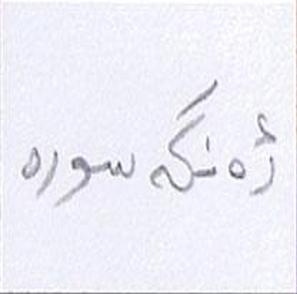 ژەنگە سورە